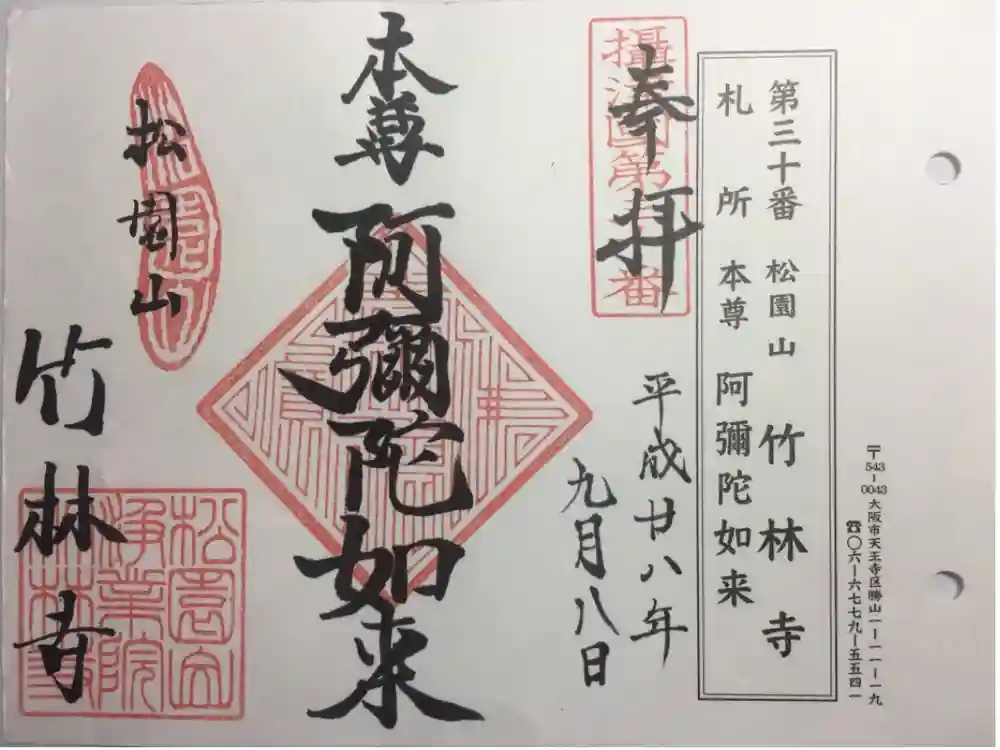 〒543-0043 大阪市天王寺区勝山一ー一一ー一九
☎〇六ー六七七九ー五五四一
第三十番 松園山 竹林寺
札所 本尊 阿彌陀如来
奉拝
平成廿八年
九月八日
本尊 阿彌陀如来
松園山
竹林寺
松園山
浄業院
竹林寺